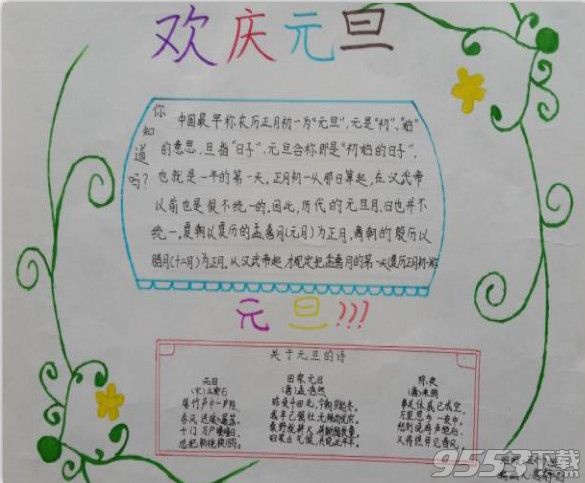 欢庆元旦
你知道吗？
中国最早称农历正月初一为“元旦”，元是“初”、“始”
的意思，旦指“日子”，元旦合称即是“初始的日子”，
也就是一年的第一天。正月初一从那日算起，在汉武帝
以前也是很不统一的，因此，历代的元旦月、日也并不
统一，夏朝以夏历的孟喜月(元月)为正月，商朝的殷历以
腊月(十二月)为正月，从汉武帝起，才规定把孟喜月的第一天(夏历正月初一
元旦???
关于元旦的诗
元日
(宋)王安石
爆竹声中一岁除
春风送暖入屠苏。
千门万户曈曈日，
总把新桃换旧符。
田家元日
(唐)孟浩然
昨夜斗回北，今朝岁起东。
我年已强仕，无禄尚忧农。
田家占气候，共说此年丰。
除夜
(唐)来鹄
事关休戚已成空，
万里思一夜中。
愁到晓鸡声绝后，
又将憔悴见春风。
9553下载